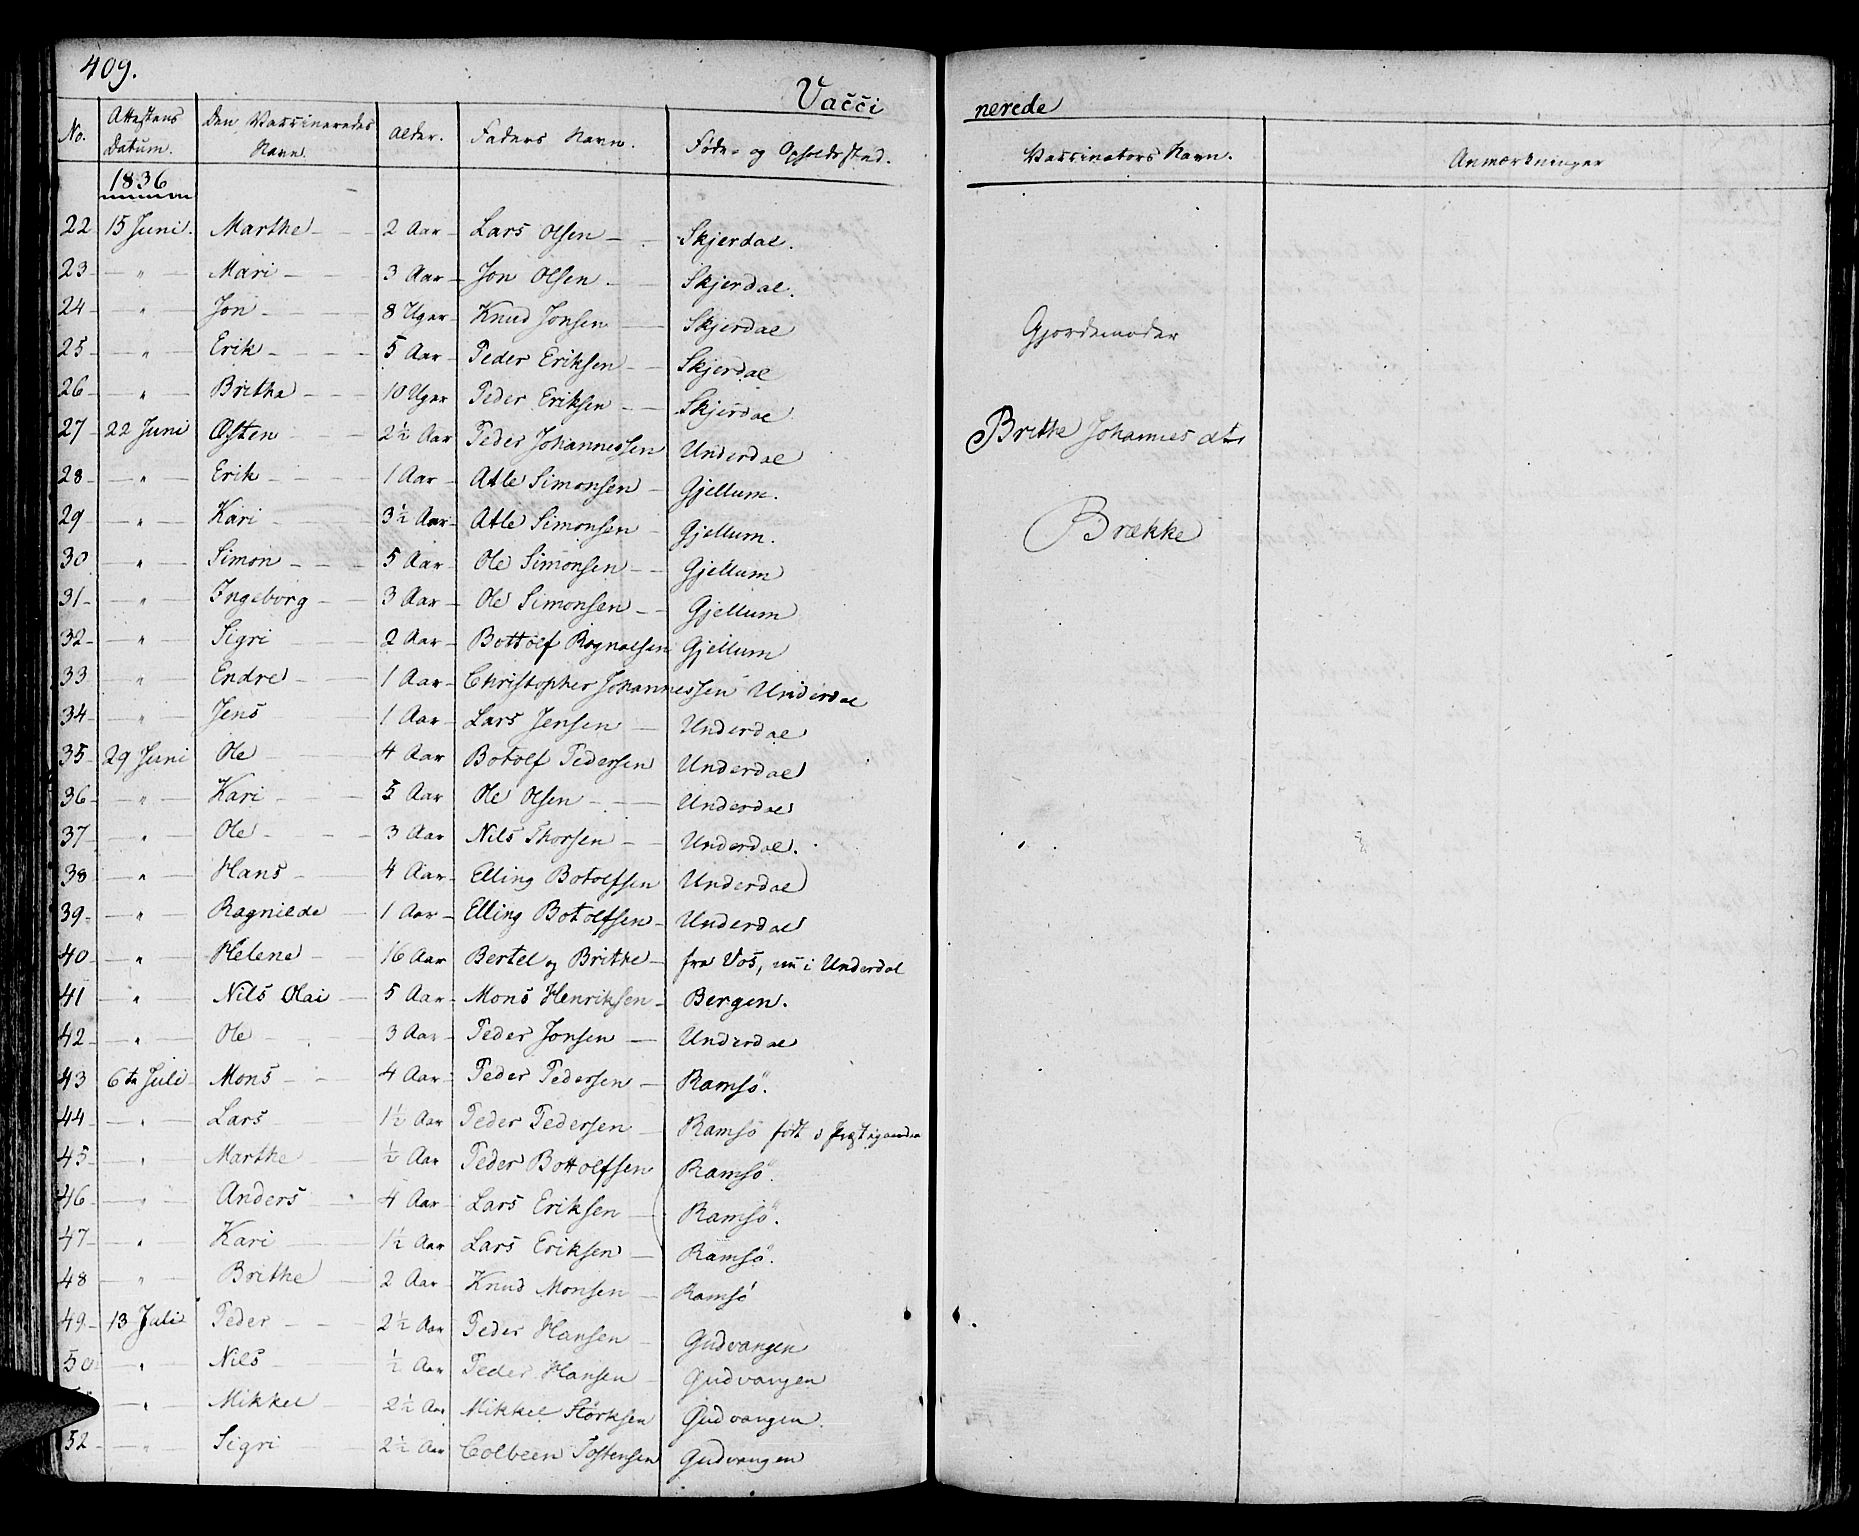 409.
Vacci nerede
No. Attestens Datum. Den Vaccineredes Navn. Alder. Faders Navn. Føde- og Opholdssted. Vaccinators Navn. Anmærkninger
1836
22 15 Juni. Marthe - - 2 Aar - Lars Olsen - - Skjerdal.
23 - " - Mari - - 3 Aar - Jon Olsen - - Skjerdal.
24 - " - Jon - - 8 Uger - Knud Jonsen - Skjerdal
Gjordemoder
25 - " - Erik - - 5 Aar - Peder Eriksen - - Skjerdal
26 - " - Brithe - - 10 Uger Peder Eriksen - - Skjerdal
27 - 22 Juni Østen - 2½ Aar Peder Johannessen Underdal
Brithe Johannesdtr
28 - " - Erik - - 1 Aar - Atle Simonsen - Gjellum.
29 - " - Kari - 3½ Aar - Atle Simonsen - Gjellum.
Brække
30 - " - Simon - - 5 Aar - Ole Simonsen - - Gjellum
31 - " - Ingeborg - 3 Aar - Ole Simonsen - - Gjellum
32 - " - Sigri - 2 Aar - Bottolf Ragnalsen Gjellum
33 - " - Endre - - 1 Aar - Christopher Johannessen Underdal
34 - " - Jens - 1 Aar - Lars Jensen - Underdal
35 - 29 Juni Ole - 4 Aar Botolf Pedersen Underdal
36 - " - Kari - 5 Aar Ole Olsen - - Underdal
37 - " - Ole - - 3 Aar - Nils Thorsen - - Underdal.
38 - " - Hans - 4 Aar - Elling Botolfsen Underdal
39 - " - Ragnilde - 1 Aar - Elling Botolfsen - Underdal
40 - " - Helene - 16 Aar Bertel og Brithe - fra Vos, nu i Underdal
41 - " - Nils Olai - 5 Aar - Mons Henriksen - Bergen.
42 - " - Ole - 3 Aar - Peder Jonsen - Underdal
43 6te Juli - Mons - - 4 Aar - Peder Pedersen - Ramsø.
44 - " - Lars 1½ Aar Peder Pedersen - Ramsø født i
45 - " - Marthe - ½ Aar Peder Bottolfsen Ramsø.
46 - " - Anders 4 Aar - Lars Eriksen - Ramsø.
47 - " - Kari 1½ Aar Lars Eriksen - Ramsø.
48 - " - Brithe - 2 Aar - Knud Monsen - Ramsø
49 - 13 Juli Peder - - 2½ Aar Peder Hansen - Gudvangen
50 - " - Nils ½ Aar Peder Hansen - Gudvangen
- " - Mikkel - 2½ Aar Mikkel Størksen Gudvangen.
52 - " - Sigri - 2½ Aar Colbeen Tostensen Gudvangen